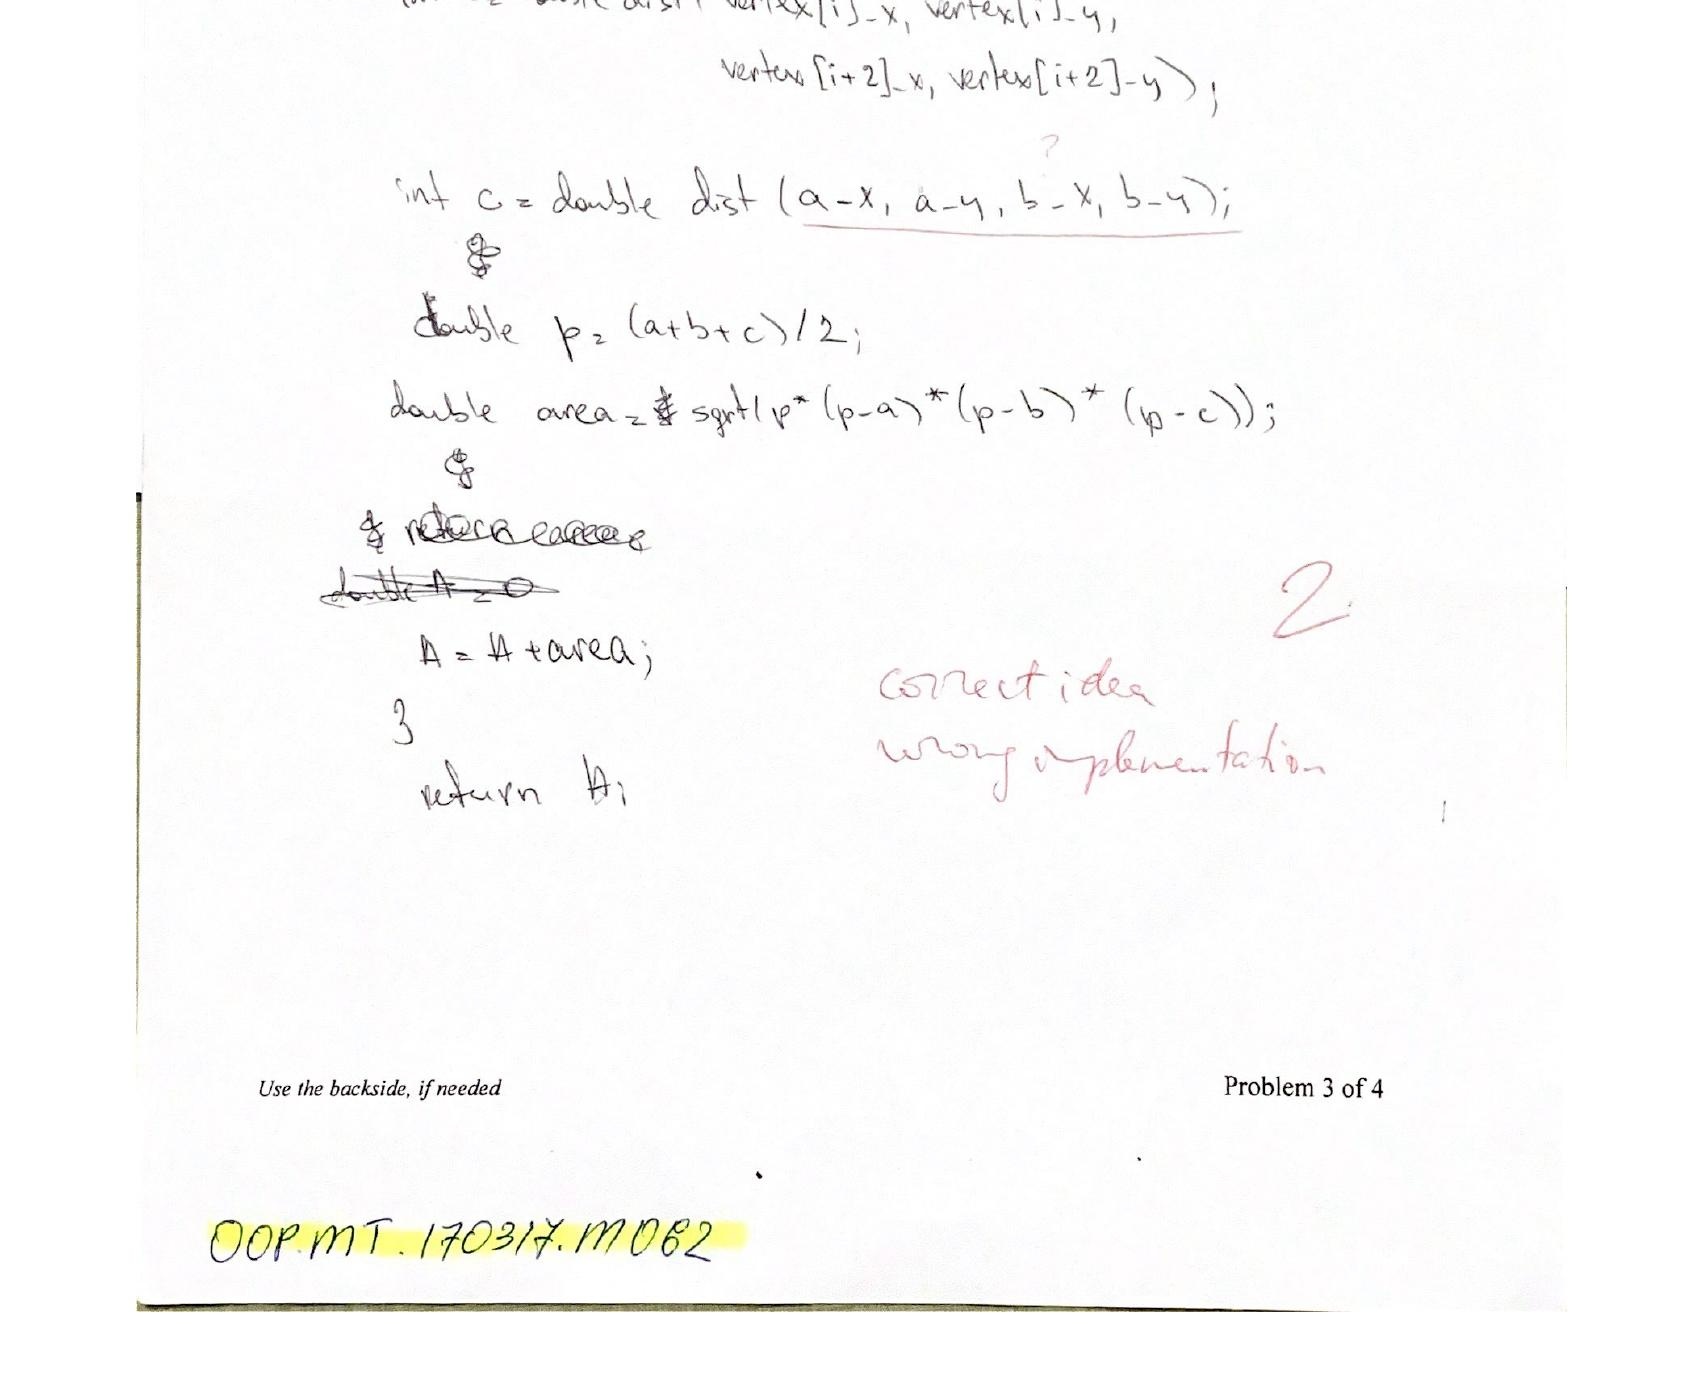 vertex[i]-x, vertex[i]-y,
vertex[i+2]-x, vertex[i+2]-y);
?
int c = double dist (a-x, a-y, b-x, b-y);
double p = (a+b+c)/2;
double area = sqrt(p*(p-a)*(p-b)*(p-c));
double A = 0
2
A = A + area;
correct idea
}
wrong implementation
return A;
Use the backside, if needed
Problem 3 of 4
OOP.MT.170317.M062